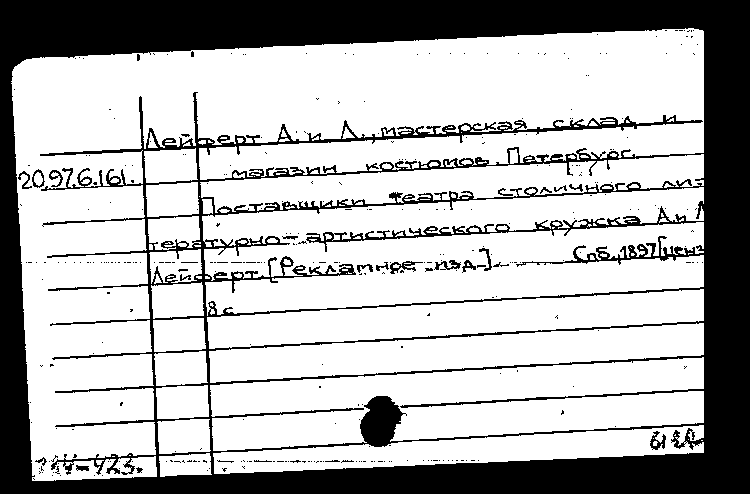 Лейферт А. и Л., мастерская, склад и
20.97.6.161.
магазин костюмов. Петербург.
Поставщики театра столичного ли-
тературно-артистического кружка А. и Л
Лейферт. [Рекламное изд.] Спб., 1897 [ценз
8 с.